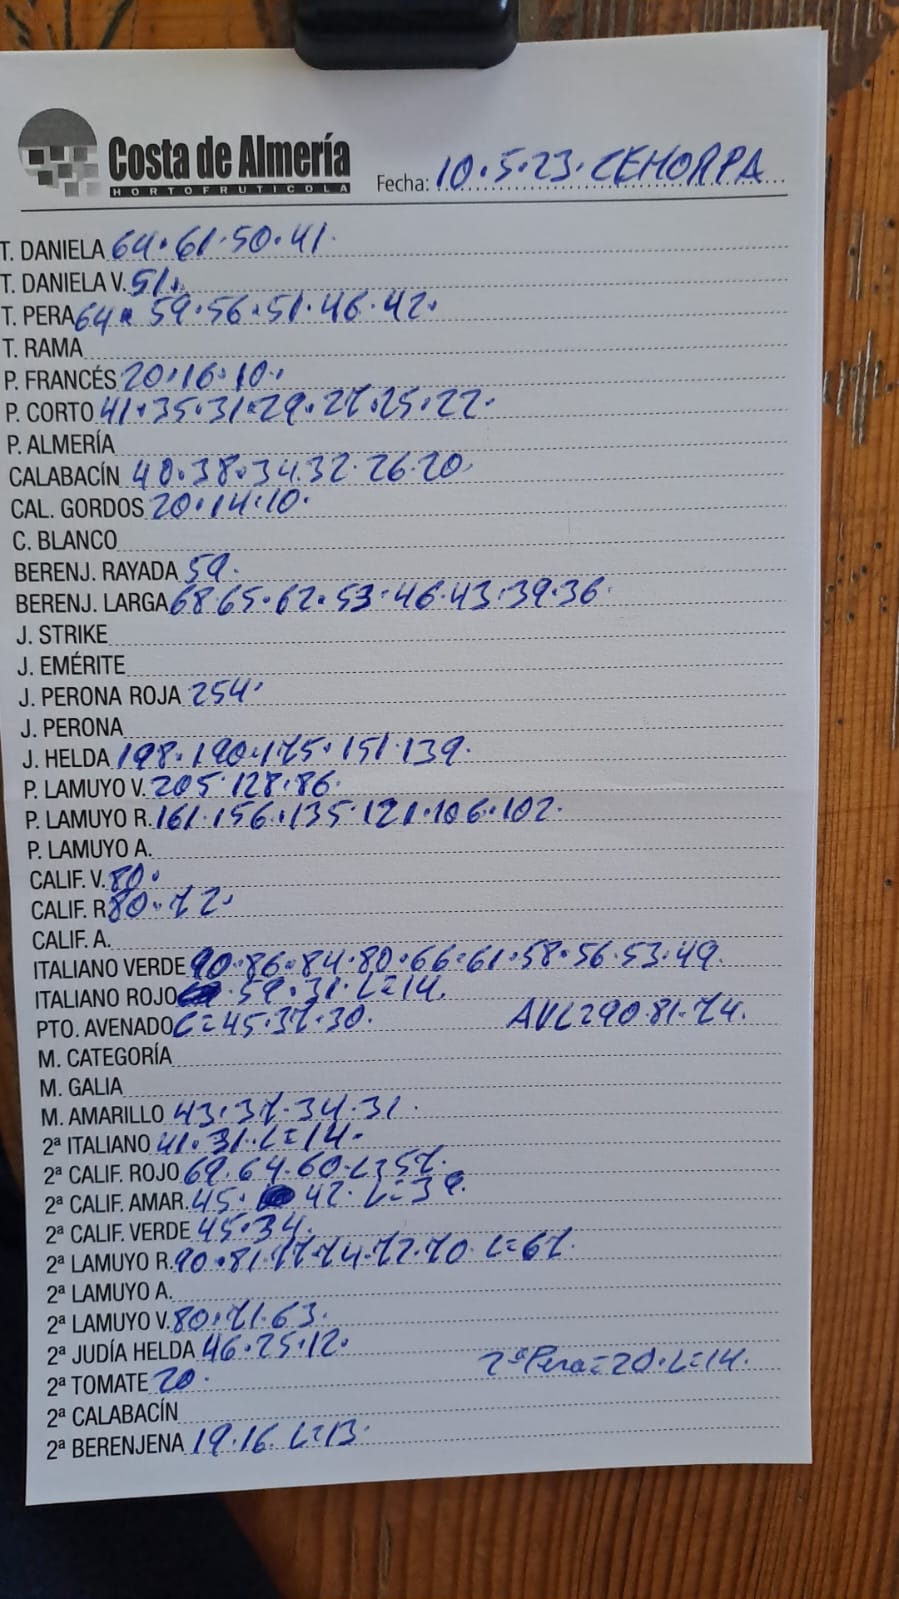 Costa de Almería
HORTOFRUTICOLA
Fecha: 10.5.23. CEHORPA
T. DANIELA 64.61.50.41.
T. DANIELA V. 51.
T. PERA 64.59.56.51.46.42.
T. RAMA
P. FRANCÉS 20.16.10.
P. CORTO 41.35.31.29.27.25.22.
P. ALMERÍA
CALABACÍN 40.38.34.32.26.20.
CAL. GORDOS 20.14.10.
C. BLANCO
BERENJ. RAYADA 59.
BERENJ. LARGA 68.65.62.53.46.43.39.36.
J. STRIKE
J. EMÉRITE
J. PERONA ROJA 254.
J. PERONA
J. HELDA 198.190.175.151.139.
P. LAMUYO V. 205.128.86.
P. LAMUYO R. 161.156.135.121.106.102.
P. LAMUYO A.
CALIF. V. 80.
CALIF. R. 80.72.
CALIF. A.
ITALIANO VERDE 90.86.84.80.66.61.58.56.53.49.
ITALIANO ROJO .59.31.L=14.
PTO. AVENADO C=45.37.30. AVL=90.81.74.
M. CATEGORÍA
M. GALIA
M. AMARILLO 43.37.34.31.
2ª ITALIANO 41.31.L=14.
2ª CALIF. ROJO 69.64.60.L=57.
2ª CALIF. AMAR. 45. 42. L=39.
2ª CALIF. VERDE 45.34.
2ª LAMUYO R. 90.81.77.74.72.70. L=67.
2ª LAMUYO A.
2ª LAMUYO V. 80.71.63.
2ª JUDÍA HELDA 46.25.12.
2ª Pera=20.L=14.
2ª TOMATE 20.
2ª CALABACÍN
2ª BERENJENA 19.16. L=13.